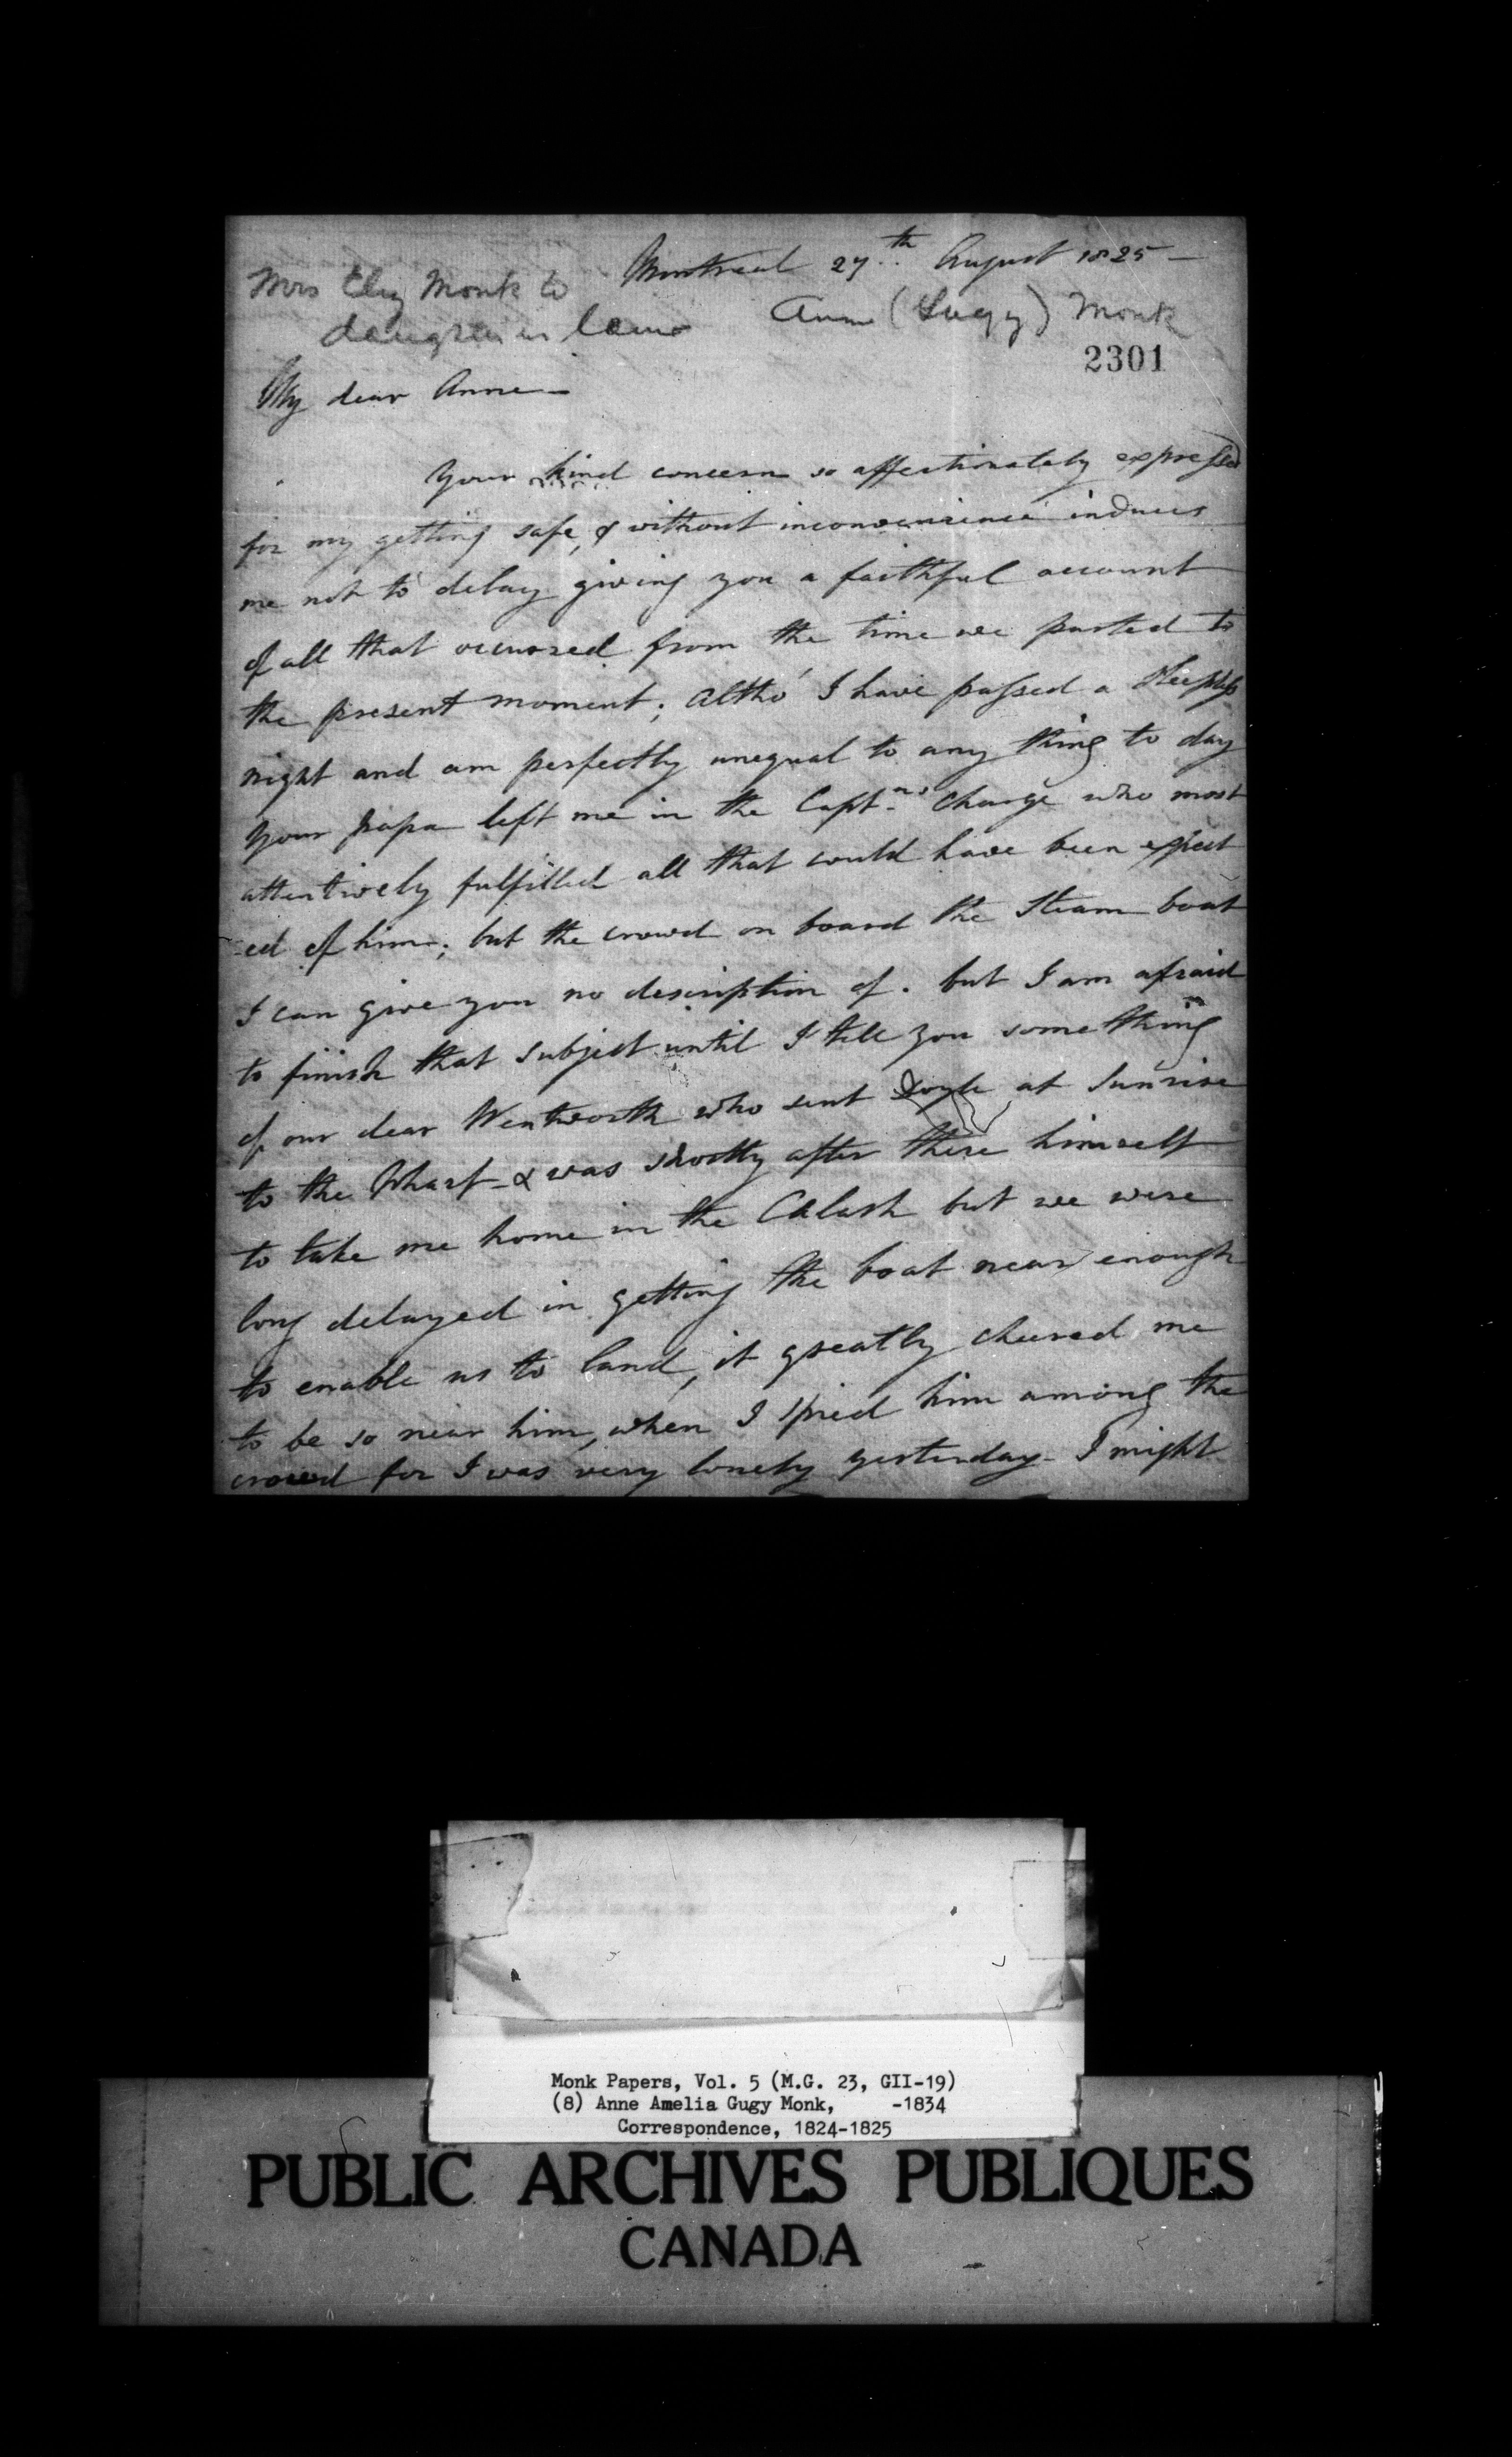 Montreal 27th August 1825 —
Mrs Eliz Monk to
daughter in law Ann (Gugy) Monk
2301
My dear Anne —
Your kind concern so affectionately expressed
for my getting safe, & without inconvenience induces
me not to delay giving you a faithful account
of all that occurred from the time we parted to
the present moment; altho' I have passed a sleepless
night and am perfectly unequal to any thing to day
your papa left me in the Captns charge who most
attentively fulfilled all that could have been expect
-ed of him; but the crowd on board the Steam boat
I can give you no description of. but I am afraid
to finish that subject until I tell you something
of our dear Wentworth who sent Doyle at Sunrise
to the Wharf - & was shortly after there himself
to take me home in the Calash but we were
long delayed in getting the boat near enough
to enable us to land, it greatly cheered me
to be so near him, when I spied him among the
crowd for I was very lonely yesterday - I might
Monk Papers, Vol. 5 (M.G. 23, GII-19)
(8) Anne Amelia Gugy Monk, -1834
Correspondence, 1824-1825
PUBLIC ARCHIVES PUBLIQUES
CANADA